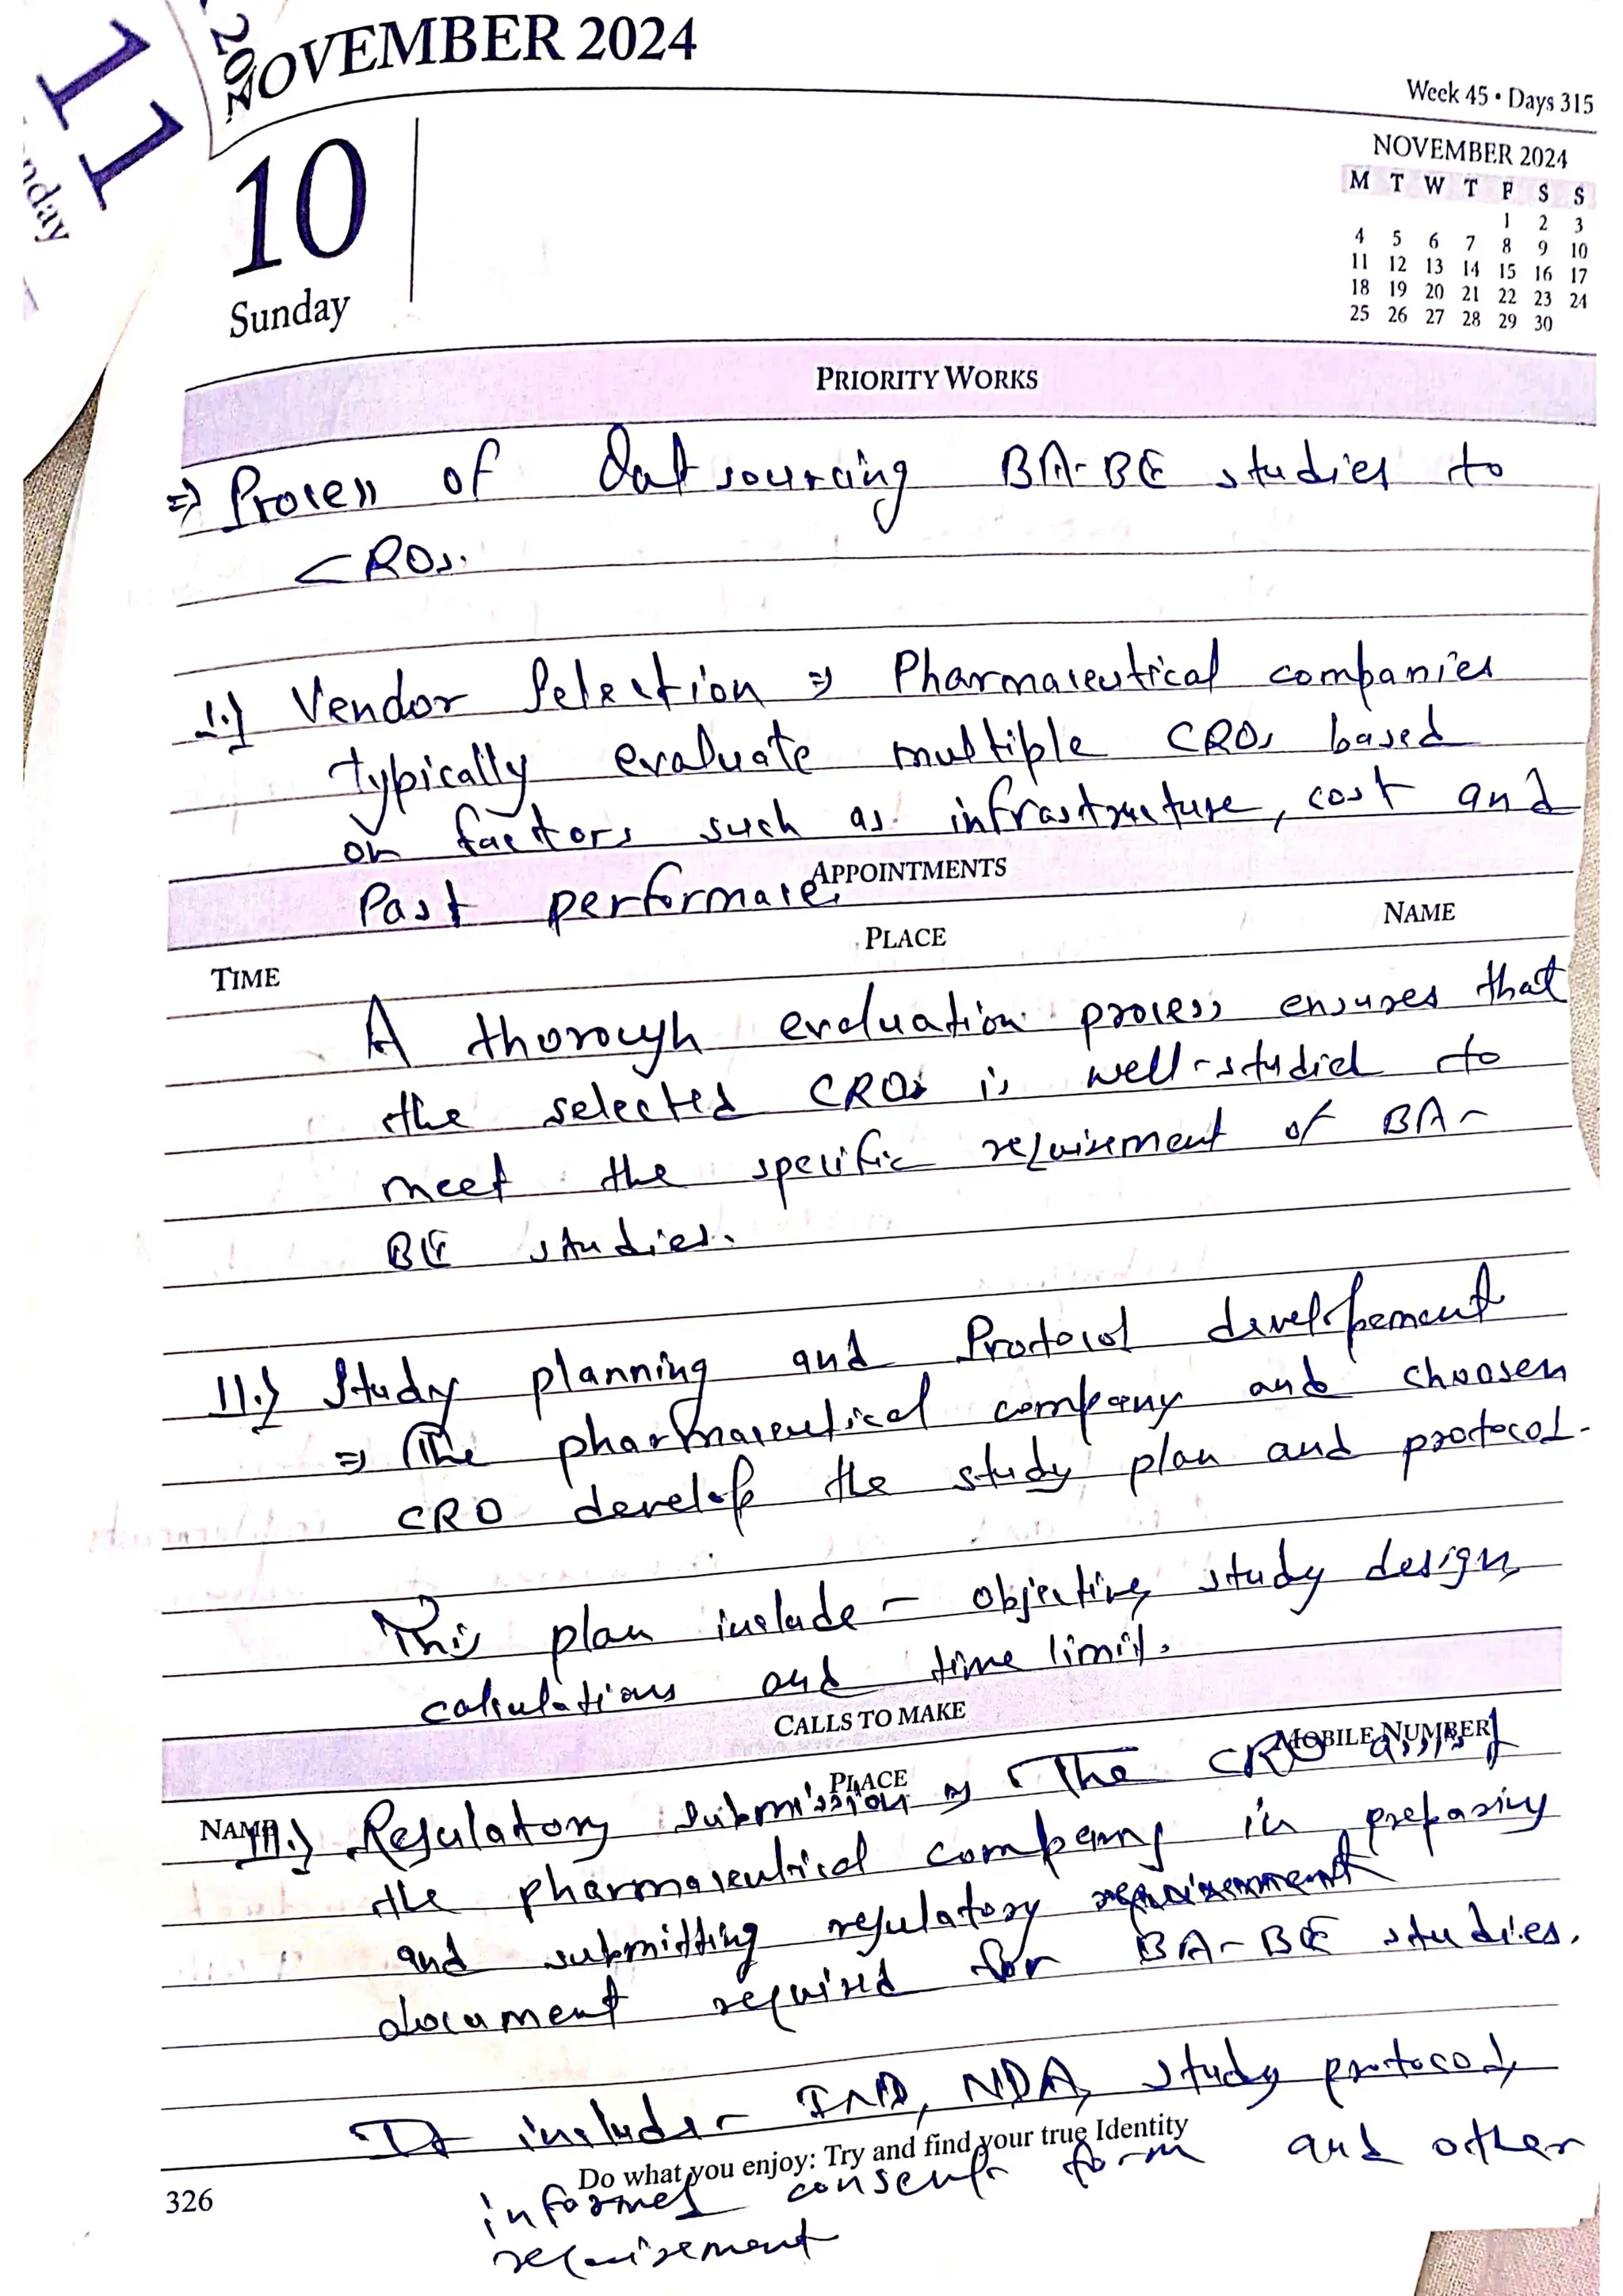 11
nday
202
NOVEMBER 2024
Week 45 • Days 315
10
Sunday
NOVEMBER 2024
M T W T F S S
1 2 3
4 5 6 7 8 9 10
11 12 13 14 15 16 17
18 19 20 21 22 23 24
25 26 27 28 29 30
PRIORITY WORKS
⇒ Process of Outsourcing BA-BE studies to
CROs.
I.} Vendor Selection ⇒ Pharmaceutical companies
typically evaluate multiple CROs based
on factors such as infrastructure, cost and
APPOINTMENTS
Past performace.
TIME PLACE NAME
A thorough evaluation process ensures that
the selected CROs is well-studied to
meet the specific requirement of BA-
BE studies.
II.} Study planning and Protocol developement
⇒ The pharmaceutical company and choosen
CRO develop the study plan and protocol.
This plan include - objective, study design,
calculations and time limit.
CALLS TO MAKE
NAME PLACE MOBILE NUMBER
III.} Regulatory submission ⇒ The CRO assist
the pharmaceutical company in preparing
and submitting regulatory requirement
document required for BA-BE studies.
It include - IND, NDA, study protocol,
Do what you enjoy: Try and find your true Identity
informed consent form and other
requirement
326